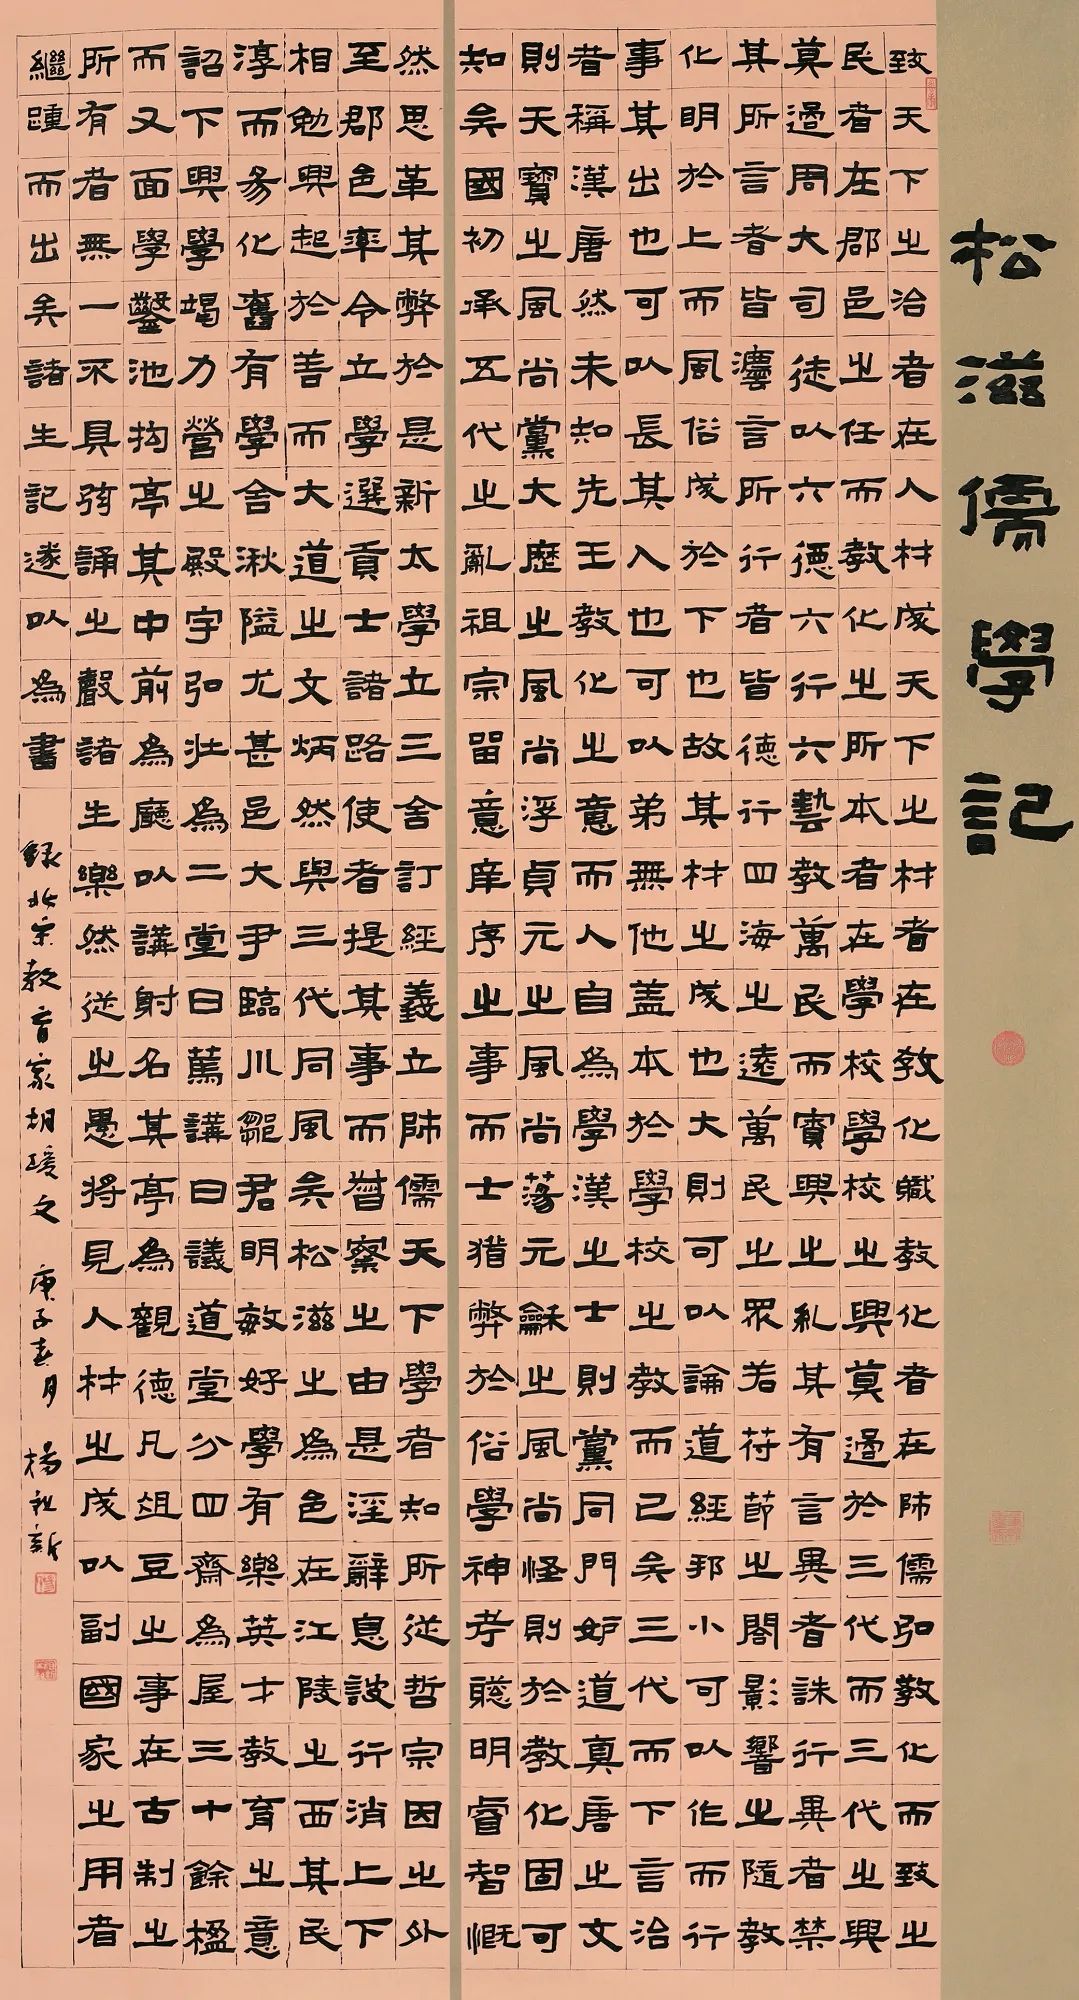 松滋儒學記
致天下之治者在人材成天下之材者在教化職教化者在師儒弘教化而致之
民者在郡邑之任而教化之所本者在學校學校之興莫過於三代而三代之興
莫過周大司徒以六德六行六藝教萬民而賓興之糺其有言異者誅行異者禁
其所言者皆灋言所行者皆德行四海之遠萬民之眾若符節之閤影響之隨教
化明於上而風俗成於下也故其材之成也大則可以論道經邦小可以作而行
事其出也可以長其入也可以弟無他蓋本於學校之教而已矣三代而下言治
者稱漢唐然未知先王教化之意而人自為學漢之士則黨同門妒道真唐之文
則天寶之風尚黨大歷之風尚浮貞元之風尚蕩元龢之風尚怪則於教化固可
知矣國初承五代之亂祖宗留意庠序之事而士猶弊於俗學神考聰明睿智慨
然思革其弊於是新太學立三舍訂經義立師儒天下學者知所從哲宗因之外
至郡邑率令立學選貢士諸路使者提其事而督察之由是淫辭息詖行消上下
相勉興起於善而大道之文炳然與三代同風矣松滋之為邑在江陵之西其民
淳而易化舊有學舍湫隘尤甚邑大尹臨川鄒君明敏好學有樂英才教育之意
詔下興學竭力營之殿宇弘壯為二堂曰篤講曰議道堂分四齋為屋三十餘楹
而又面學鑿池构亭其中前為廳以講射名其亭為觀德凡俎豆之事在古制之
所有者無一不具弦誦之聲諸生樂然從之愚將見人材之成以副國家之用者
繼踵而出矣諸生記遂以為書
錄北宋教育家胡瑗文 庚子春月 楊祖新